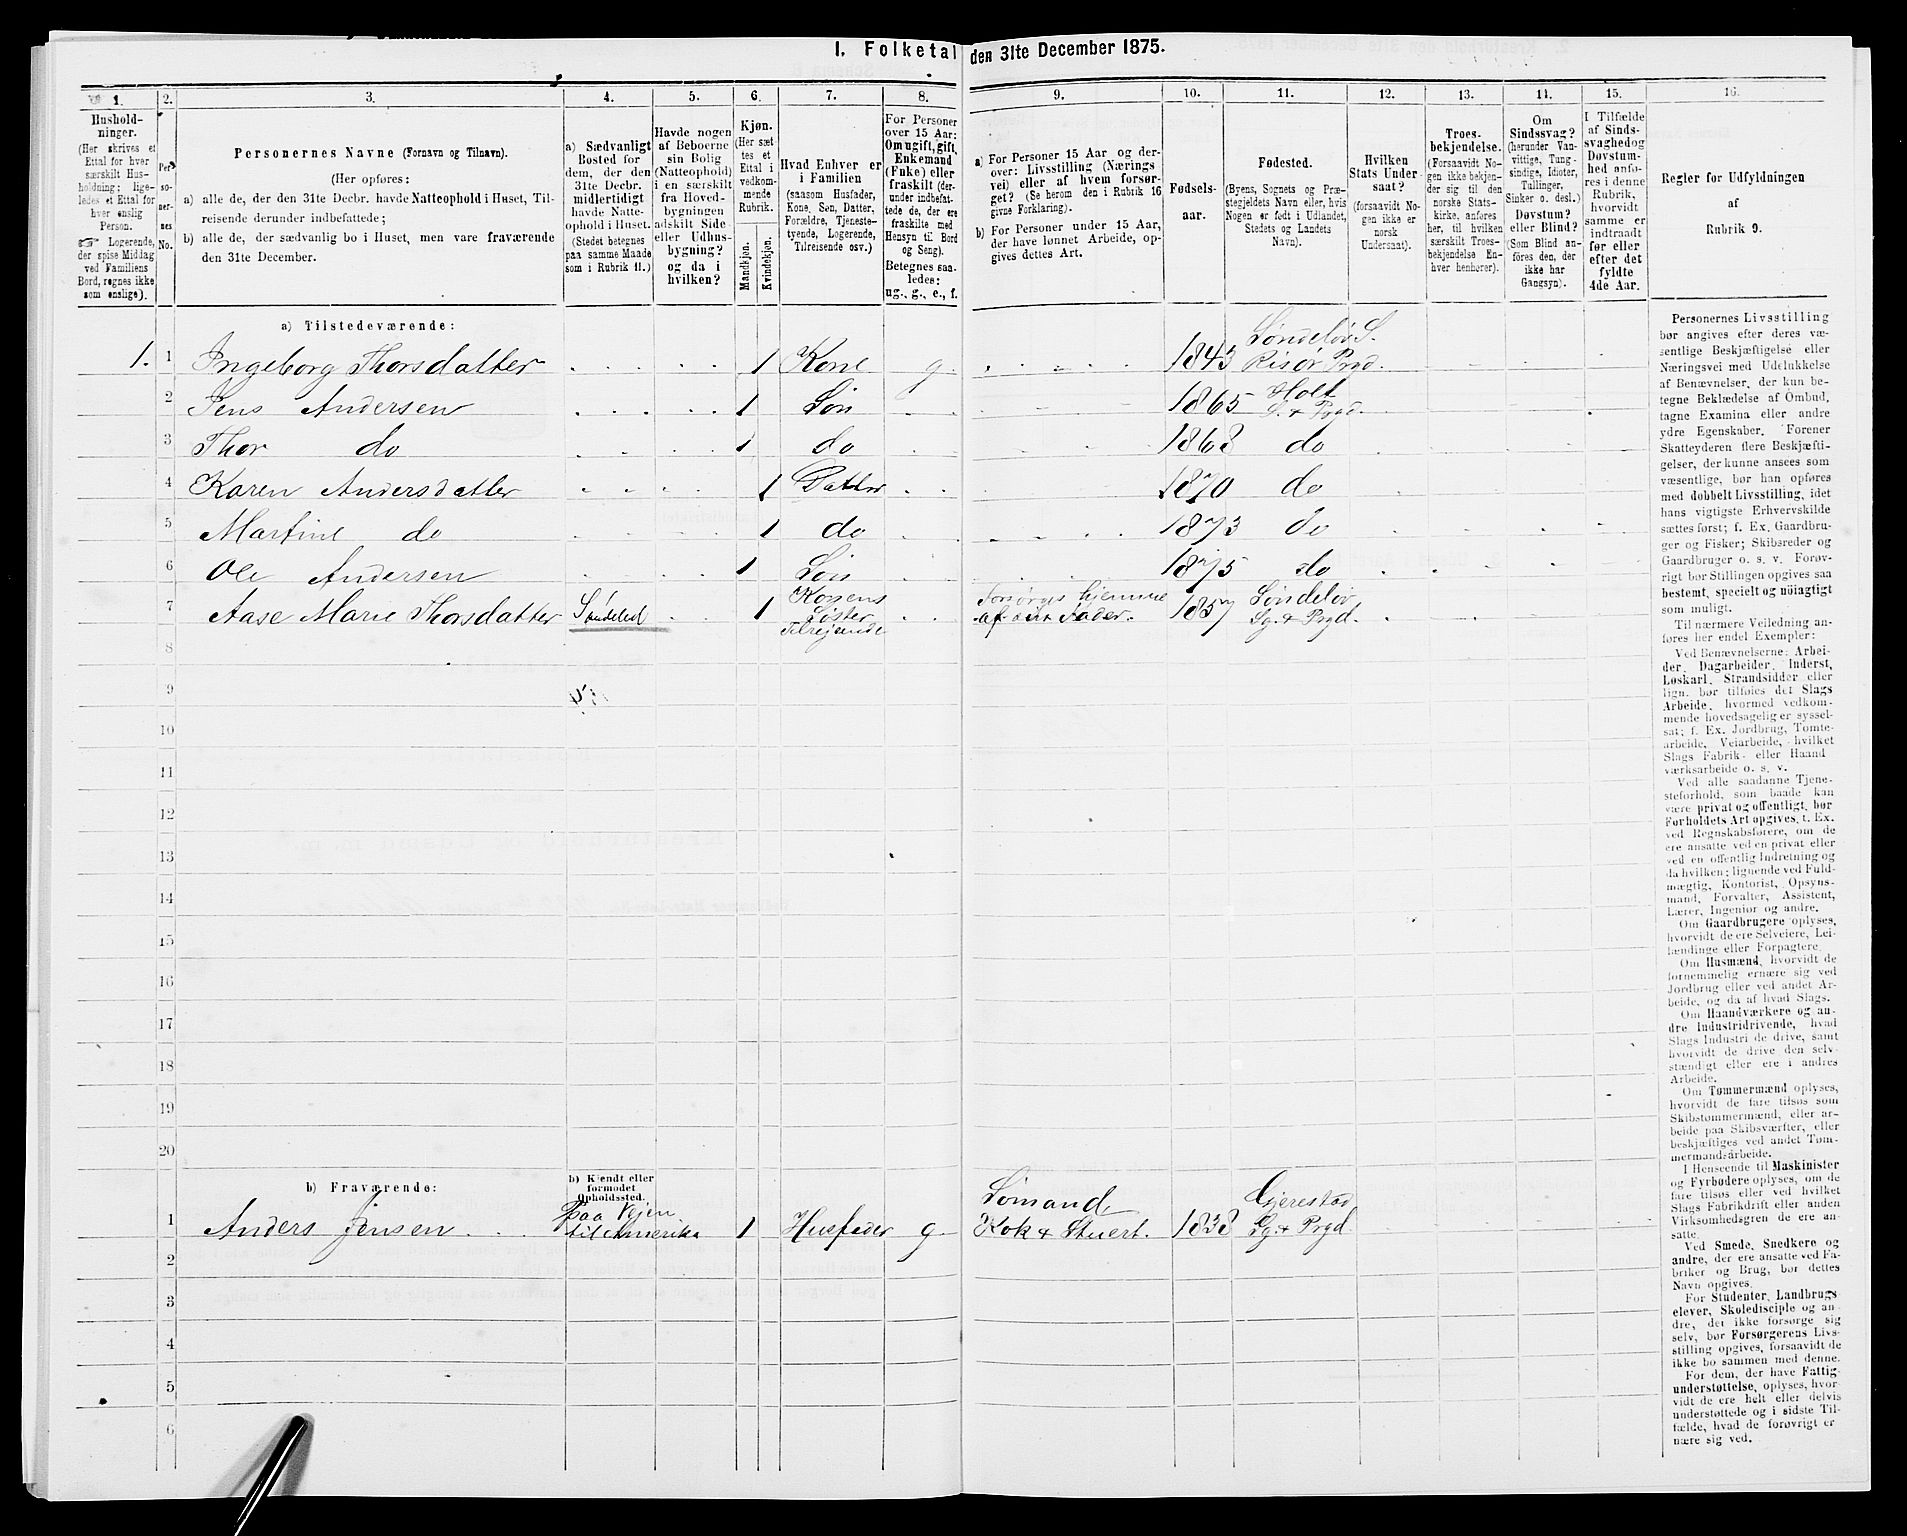 I. Folketal den 31te December 1875.
1. 2. 3. 4. 5. 6. 7. 8. 9. 10. 11. 12. 13. 14. 15. 16.
Hushold-
ninger.
(Her skrives et
Ettal for hver
særskilt Hus-
holdning; lige-
ledes et Ettal for
hver enslig
Person.
☞ Logerende,
der spise Middag
ved Familiens
Bord, regnes ikke
som enslige).
Per-
so-
ner-
nes
No.
Personernes Navne (Fornavn og Tilnavn).
(Her opføres:
a) alle de, der den 31te Decbr. havde Natteophold i Huset, Til-
reisende derunder indbefattede;
b) alle de, der sædvanlig bo i Huset, men vare fraværende
den 31te December.
a) Sædvanligt
Bosted for
dem, der den
31te Decbr.
midlertidigt
havde Natte-
ophold i Huset.
(Stedet betegnes
paa samme Maade
som i Rubrik 11.)
Havde nogen
af Beboerne
sin Bolig
(Natteophold)
i en særskilt
fra Hoved-
bygningen
adskilt Side-
eller Udhus-
bygning?
og da i
hvilken?
Kjøn.
(Her sæt-
tes et
Ettal i
vedkom-
mende
Rubrik.
Mandkjøn.
Kvindekjøn.
Hvad Enhver er
i Familien
(saasom Husfader,
Kone, Søn, Datter,
Forældre, Tjeneste-
tyende, Logerende,
Tilreisende osv.)
For Personer
over 15 Aar:
Om ugift, gift,
Enkemand
(Enke) eller
fraskilt (der-
under indbefat-
tede de, der ere
fraskilte med
Hensyn til Bord
og Seng).
Betegnes saa-
ledes:
ug., g., e., f.
a) For Personer 15 Aar og der-
over: Livsstilling (Nærings-
vei) eller af hvem forsør-
get? (Se herom den i Rubrik 16
givne Forklaring).
b) For Personer under 15 Aar,
der have lønnet Arbeide, op-
gives dettes Art.
Fødsels-
aar.
Fødested.
(Byens, Sognets og Præ-
stegjeldets Navn eller, hvis
Nogen er født i Udlandet,
Stedets og Landets
Navn).
Hvilken
Stats Under-
saat?
(forsaavidt No-
gen ikke er
norsk
Undersaat).
Troes-
bekjendelse.
(Forsaavidt No-
gen ikke bekjen-
der sig til den
norske Stats-
kirke, anføres
her, til hvilken
særskilt Troes-
bekjendelse En-
hver henhører).
Om
Sindssvag?
(herunder Van-
vittige, Tung-
sindige, Idioter,
Tullinger,
Sinker o. desl.)
Døvstum?
eller Blind?
(Som Blind an-
føres den, der
ikke har
Gangsyn).
I Tilfælde
af Sinds-
svaghed og
Døvstum-
hed anfø-
res i denne
Rubrik,
hvorvidt
samme er
indtraadt
før eller
efter det
fyldte
4de Aar.
Regler for Udfyldningen
af
Rubrik 9.
a) Tilstedeværende:
1. 1 Ingeborg Thorsdatter 1 Kone g 1843 Søndeløv S. Risør Prgd.
2 Jens Andersen 1 Søn 1865 Holt S. + Prgd.
3 Thor do 1 do 1868 do
4 Karen Andersdatter 1 Datter 1870 do
5 Martine do 1 do 1873 do
6 Ole Andersen 1 Søn 1875 do
7 Aase Marie Thorsdatter Søndeled 1 Konens Søster Tilrejsende Forsørges hjemme af sin Fader. 1857 Søndeløv Sg. + Prgd.
8
9
10
11
12
13
14
15
16
17
18
19
20
b) Fraværende:
b) Kjendt eller
formodet
Opholdssted.
1 Anders Jensen paa Vejen til Amerika 1 Husfader g Sømand Kok + Stuert. 1838 Gjerestad Sg. + Prgd
2
3
4
5
6
Personernes Livsstilling
bør angives efter deres væ-
sentlige Beskjæftigelse eller
Næringsvei med Udelukkelse
af Benævnelser, der kun be-
tegne Beklædelse af Ombud,
tagne Examina eller andre
ydre Egenskaber. Forener
Skatteyderen flere Beskjæfti-
gelser, der kunne ansees som
væsentlige, bør han opføres
med dobbelt Livsstilling, idet
hans vigtigste Erhvervskilde
sættes først; f. Ex. Gaardbru-
ger og Fisker; Skibsreder og
Gaardbruger o. s. v. Forøv-
rigt bør Stillingen opgives saa
bestemt, specielt og nøiagtigt
som muligt.
Til nærmere Veiledning an-
føres her endel Exempler:
Ved Benævnelserne: Arbei-
der, Dagarbeider, Inderst,
Løskarl, Strandsidder eller
lign. bør tilføies det Slags
Arbeide, hvormed vedkom-
mende hovedsagelig er syssel-
sat; f. Ex. Jordbrug, Tomte-
arbeide, Veiarbeide, hvilket
Slags Fabrik- eller Haand-
værksarbeide o. s. v.
Ved alle saadanne Tjene-
steforhold, som baade kan
være privat og offentligt, bør
Forholdets Art opgives, f. Ex.
ved Regnskabsførere, om de
ere ansatte ved en privat eller
ved en offentlig Indretning og
da hvilken; lignende ved Fuld-
mægtig, Kontorist, Opsyns-
mand, Forvalter, Assistent,
Lærer, Ingeniør og andre.
Om Gaardbrugere oplyses,
hvorvidt de ere Selveiere, Lei-
lændinge eller Forpagtere.
Om Husmænd, hvorvidt de
fornemmelig ernære sig ved
Jordbrug eller ved andet Ar-
beide, og da af hvad Slags.
Om Haandværkere og an-
dre Industridrivende, hvad
Slags Industri de drive, samt
hvorvidt de drive den selv-
stændigt eller ere i andres
Arbeide.
Om Tømmermænd oplyses,
hvorvidt de fare tilsøs som
Skibstømmermænd, eller ar-
beide paa Skibsværfter, eller
beskjæftiges ved andet Tøm-
mermandsarbeide.
I Henseende til Maskinister
og Fyrbødere oplyses, om de
fare tilsøs eller ved hvilket
Slags Fabrikdrift eller anden
Virksomhedsgren de ere an-
satte.
Ved Smede, Snedkere og
andre, der ere ansatte ved Fa-
briker og Brug, bør dettes
Navn opgives.
For Studenter, Landbrugs-
elever, Skoledisciple og an-
dre, det ikke forsørge sig
selv, bør Forsørgerens Livs-
stilling opgives, forsaavidt de
ikke bo sammen med denne.
For dem, der have Fattig-
understøttelse, oplyses, hvor-
vidt de ere helt eller delvis
understøttede og i sidste Til-
fælde, hvad de forøvrigt er-
nære sig ved.